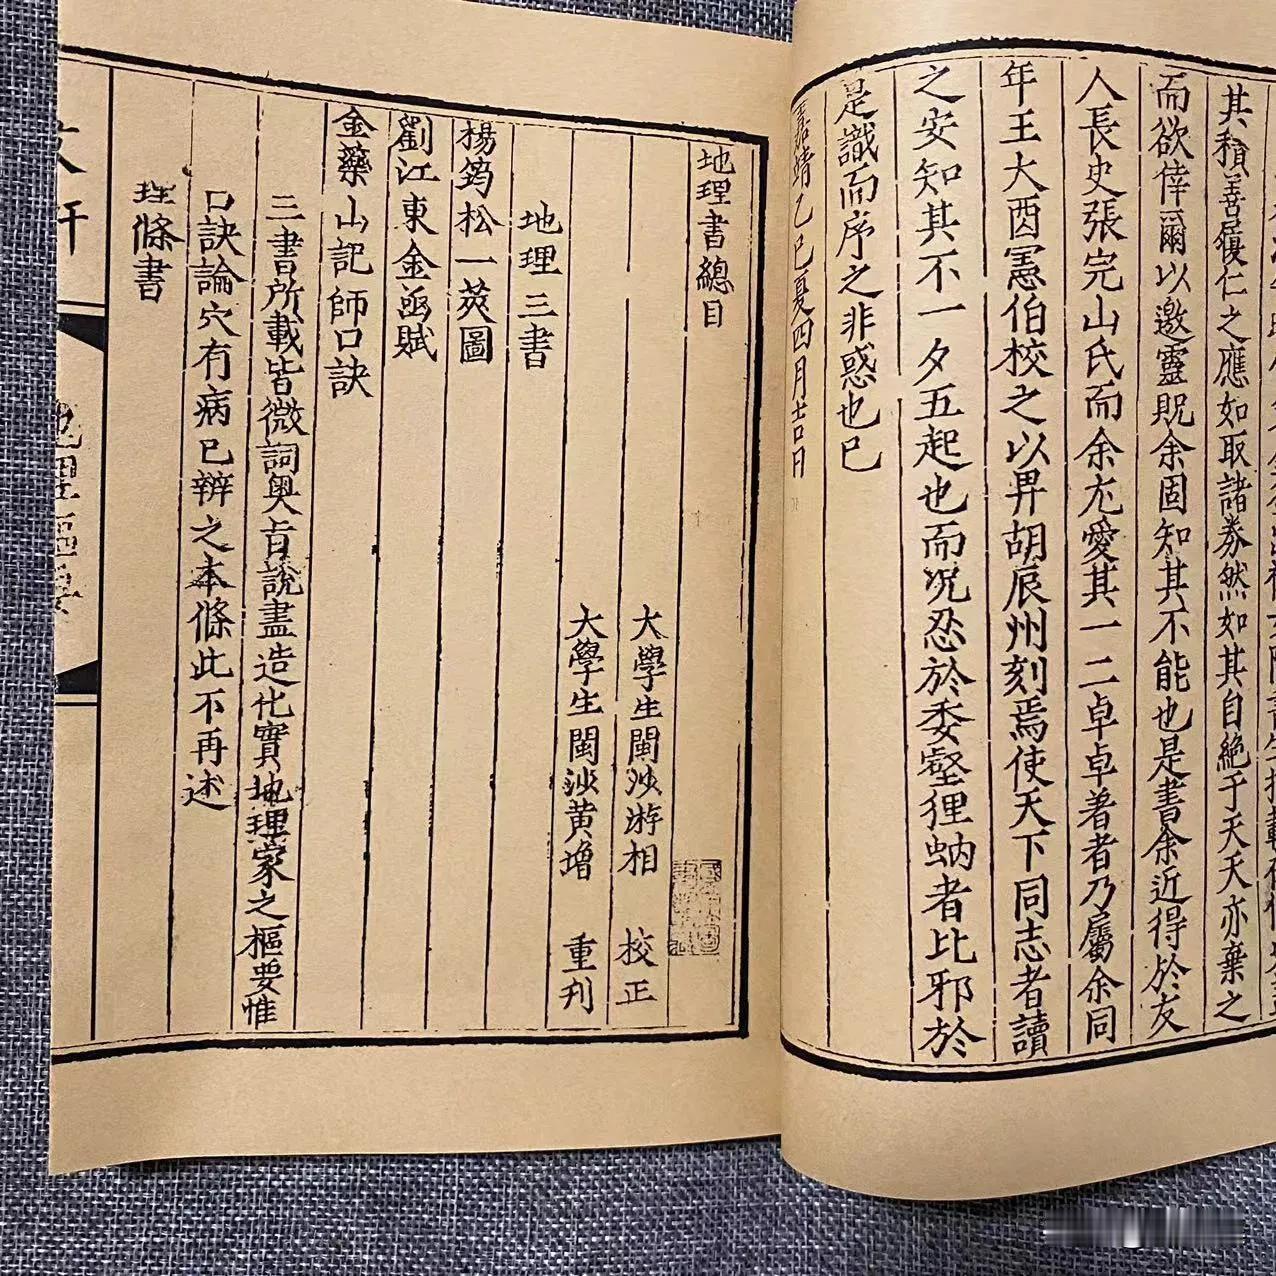 其積善履仁之應如取諸券然如其自絕于天天亦棄之
而欲倖爾以邀靈貺余固知其不能也是書余近得於友
人長史張完山氏而余尤愛其一二卓卓著者乃屬余同
年王大酉憲伯校之以畀胡辰州刻焉使天下同志者讀
之安知其不一夕五起也而況忍於委壑狸蚋者比邪於
是識而序之非惑也已
嘉靖乙巳夏四月吉日
地理書總目
大學生閩沙游相 校正
大學生閩沙黃增 重刊
地理三書
楊筠松一莢圖
劉江東金函賦
金藥山記師口訣
三書所載皆微詞奧旨說盡造化實地理家之樞要惟
口訣論穴有病已辨之本條此不再述
理條書
地理樞要